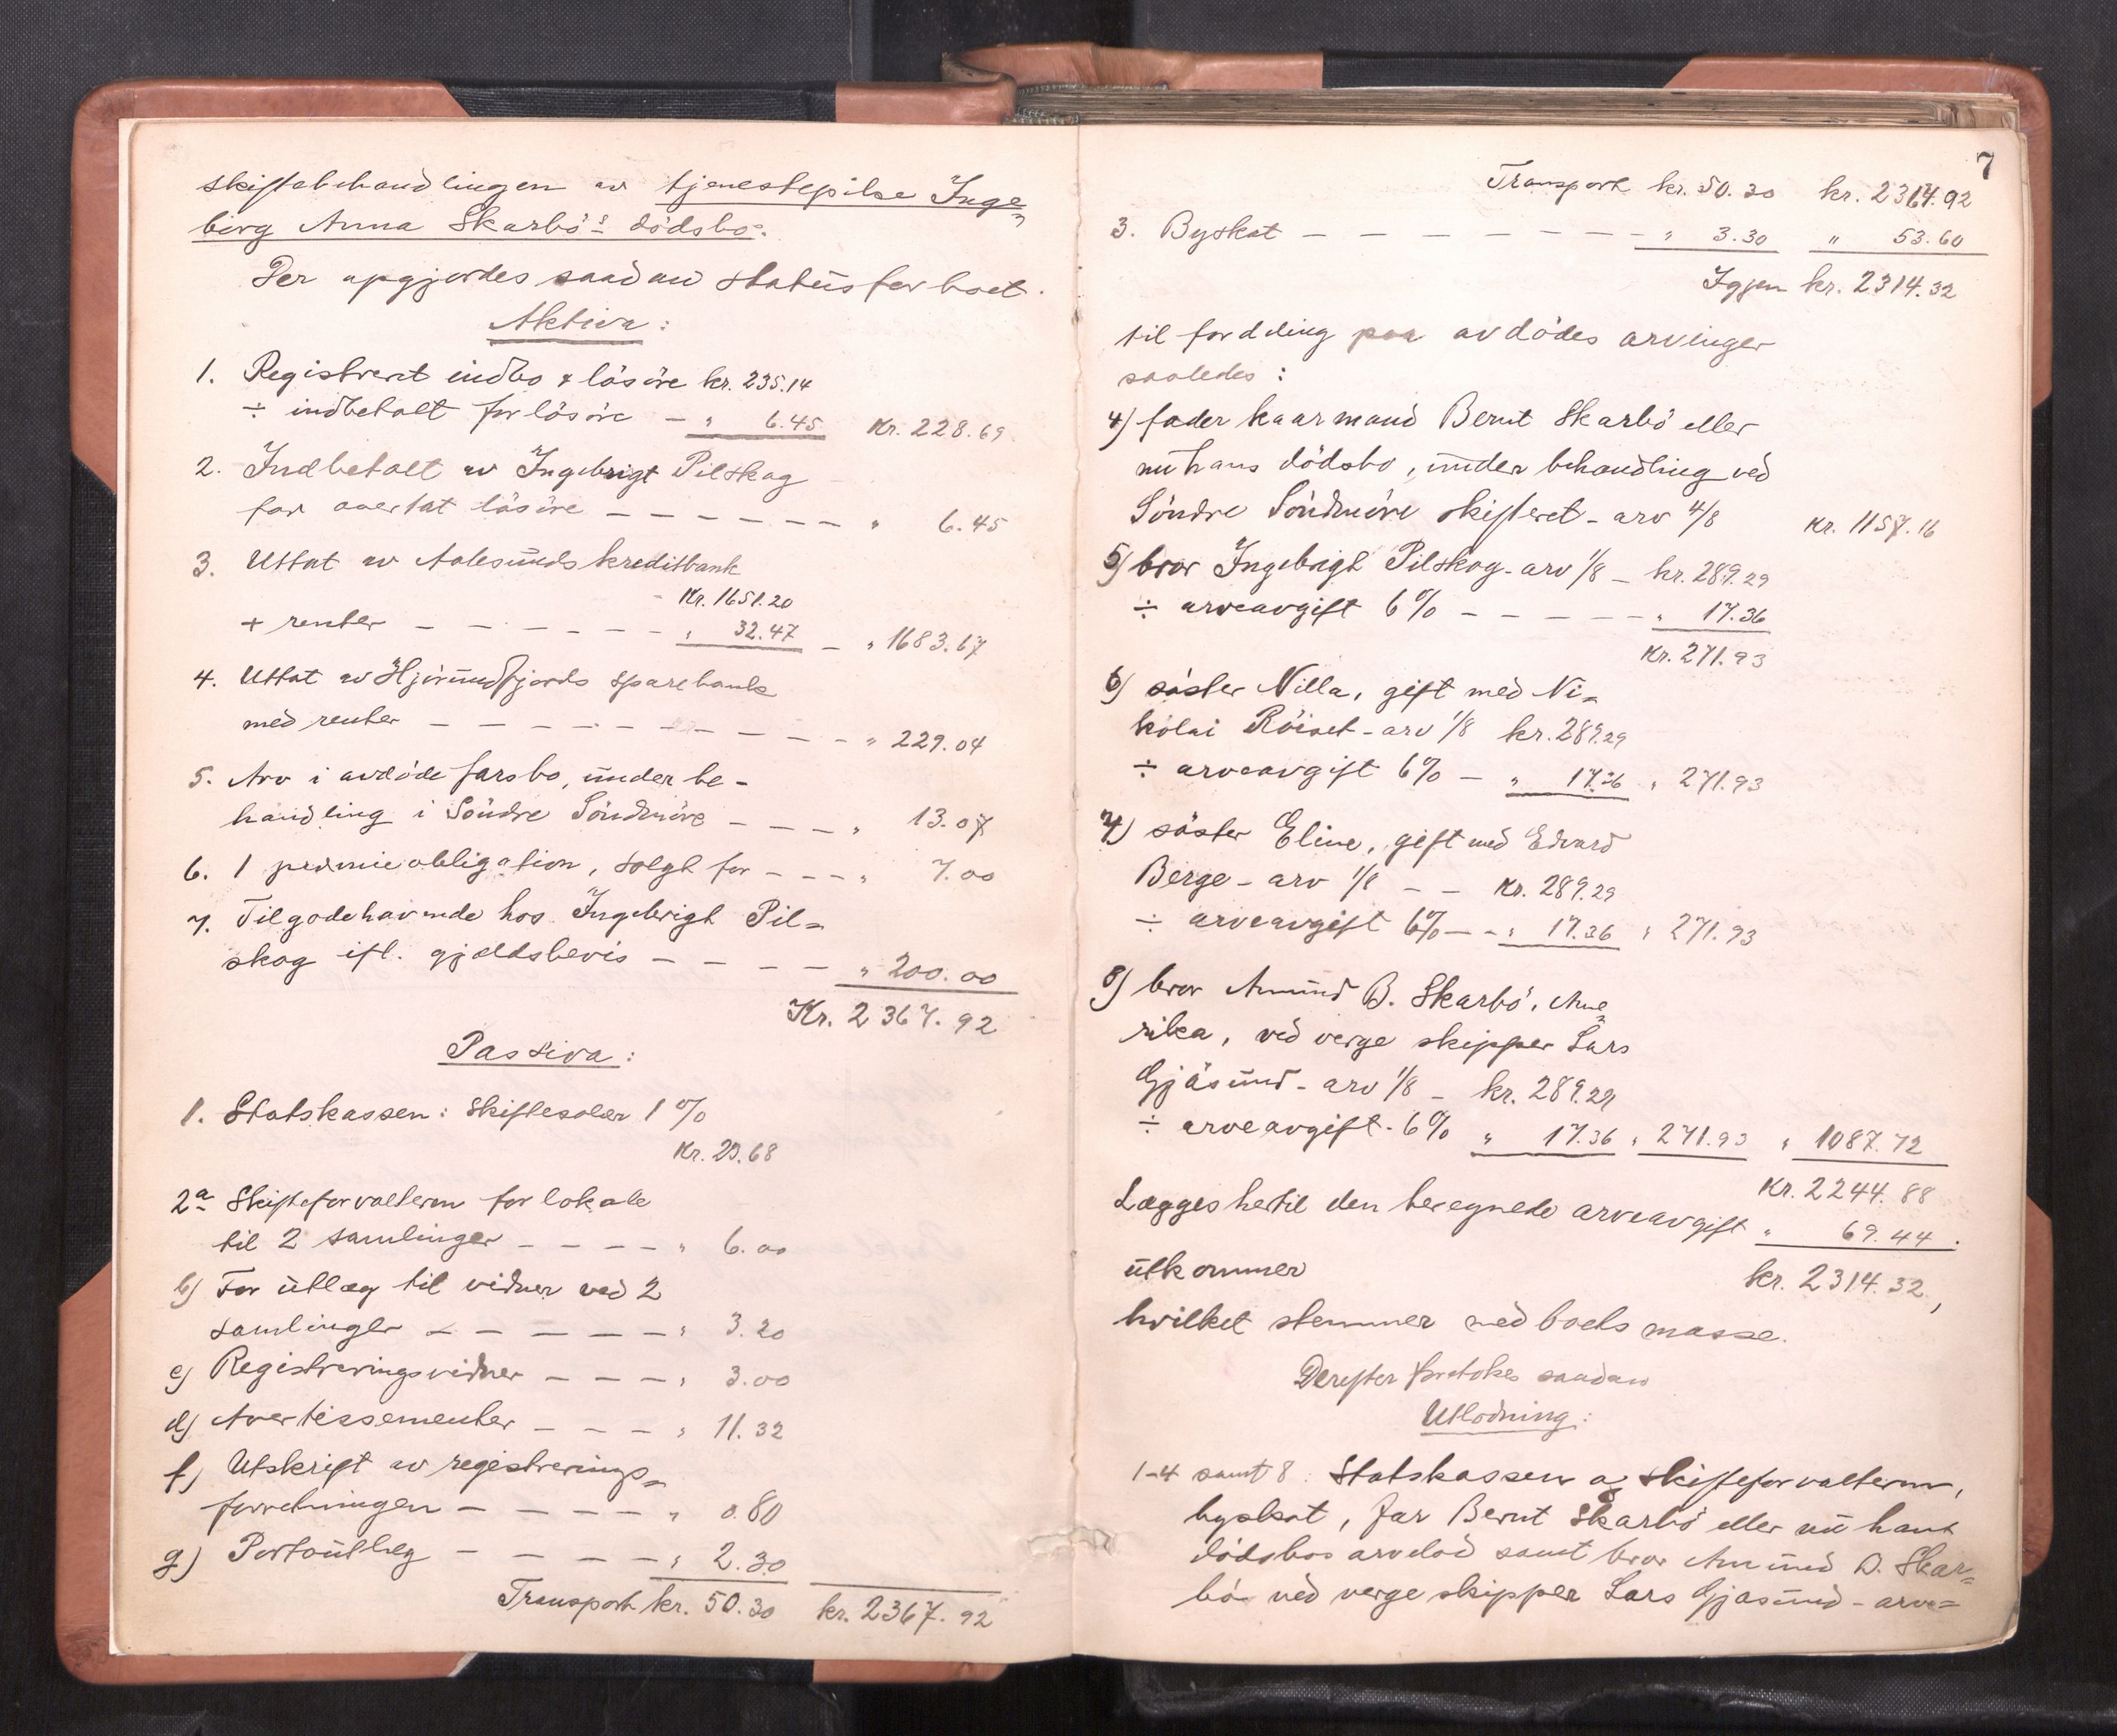 skiftebehandlingen av tjenestepike Inge=
borg Anna Skarbö's dödsbo.
Der opgjordes saadan status for boet.
Aktiva:
1. Registrert indbo & lösöre kr. 235.14
÷ indbetalt for lösöre — " 6.45 Kr. 228.69
2. Indbetalt av Ingebrigt Pilskog
for overtat lösöre — — — — — — — " 6.45
3. Uttat av Aalesunds kreditbank
Kr. 1651.20
+ renter — — — — — — " 32.47 — " 1683.67
4. Uttat av Hjörundfjords sparebank
med renter — — — — — — — — — — " 229.04
5. Arv i avdöde farsbo, under be-
handling i Söndre Söndmöre — — — " 13.07
6. 1 premieobligation, solgt for — — — " 7.00
7. Tilgodehavende hos Ingebrigt Pil=
skog ifl. gjældsbevis — — — — " 200.00
Kr. 2367.92
Passiva:
1. Statskassen: Skiftesalær 1 %
Kr. 23.68
2a Skifteforvalteren for lokale
til 2 samlinger — — — — " 6.00
b) For utlæg til vidner ved 2
samlinger — — — — — — " 3.20
c) Registreringsvidner — — — " 3.00
d) Avertissementer — — — — " 11.32
f) Utskrift av registrerings=
forretningen — — — — — " 0.80
g) Portoutlæg — — — — — " 2.30
Transport kr. 50.30 kr. 2367.92
7
Transport kr. 50.30 kr. 2367.92
3. Byskat — — — — — — — — " 3.30 " 53.60
Igjen kr. 2314.32
til fordeling paa avdödes arvinger
saaledes:
4) fader kaarmand Bernt Skarbö eller
nu hans dödsbo, under behandling ved
Söndre Söndmöre skifteret - arv 4/8 Kr. 1157.16
5) bror Ingebrigt Pilskog - arv 1/8 — kr. 289.29
÷ arveavgift 6% — — — — — " 17.36
Kr. 271.93
6) söster Nilla, gift med Ni=
kolai Röiset - arv 1/8 kr. 289.29
÷ arveavgift 6% — " 17.36 " 271.93
7) söster Eline, gift med Edvard
Berge - arv 1/8 — — Kr. 289.29
÷ arveavgift 6% — - " 17.36 " 271.93
8) bror Amund B. Skarbö, Ame=
rika, ved verge skipper Lars
Gjäsund - arv 1/8 — kr. 289.29
÷ arveavgift - 6% " 17.36 " 271.93 " 1087.72
Kr. 2244.88
Lægges hertil den beregnede arveavgift " 69.44.
utkommer kr. 2314.32,
hvilket stemmer med boets masse.
Derefter foretokes saadan
Utlodning:
1-4 samt 8: Statskassen og Skifteforvalteren,
byskat, far Bernt Skarbö eller nu hans
dödsbos arvelod samt bror Amund B. Skar=
bö ved verge skipper Lars Gjäsund - arve=